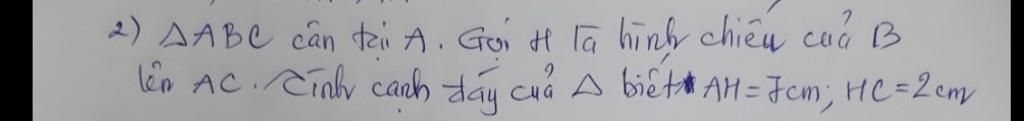 2) △ABC cân tại A. Gọi H là hình chiếu của B
lên AC. Tính cạnh đáy của △ biết AH = 7cm; HC = 2cm